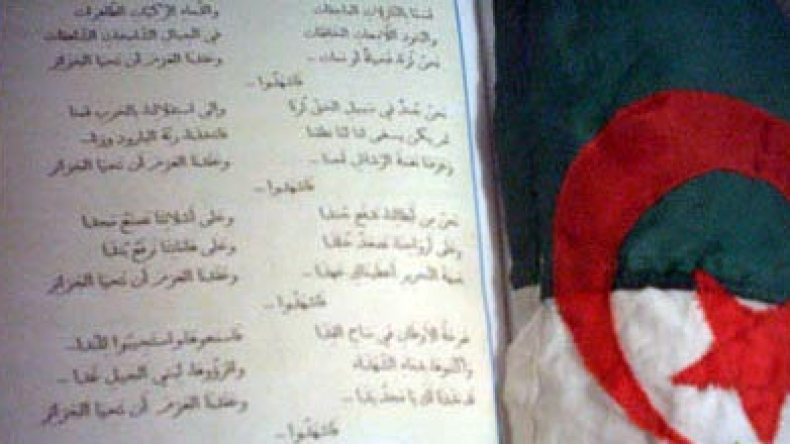 قسما بالنازلات الماحقات والدماء الزاكيات الطاهرات
والبنود اللامعات الخافقات في الجبال الشامخات الشاهقات
نحن ثرنا فحياة أو ممات ... وعقدنا العزم أن تحيا الجزائر
فاشهدوا ...
نحن جند في سبيل الحق ثرنا وإلى استقلالنا بالحرب قمنا
لم يكن يصغى لنا لما نطقنا فاتخذنا رنة البارود وزنا..
وعزفنا نغمة الرشاش لحنا ... وعقدنا العزم أن تحيا الجزائر
فاشهدوا ...
نحن من أبطالنا ندفع جندا وعلى أشلائنا نصنع مجدا
وعلى أرواحنا نصعد خلدا وعلى هاماتنا نرفع بندا
جبهة التحرير أعطيناك عهدا ... وعقدنا العزم أن تحيا الجزائر
فاشهدوا ...
صرخة الأوطان في ساح الفدا فاسمعوها واستجيبوا للندا...
واكتبوها بدماء الشهداء واقرؤوها لبني الجيل غدا ...
قد مددنا لك يا مجد يدا ... وعقدنا العزم أن تحيا الجزائر
فاشهدوا ...